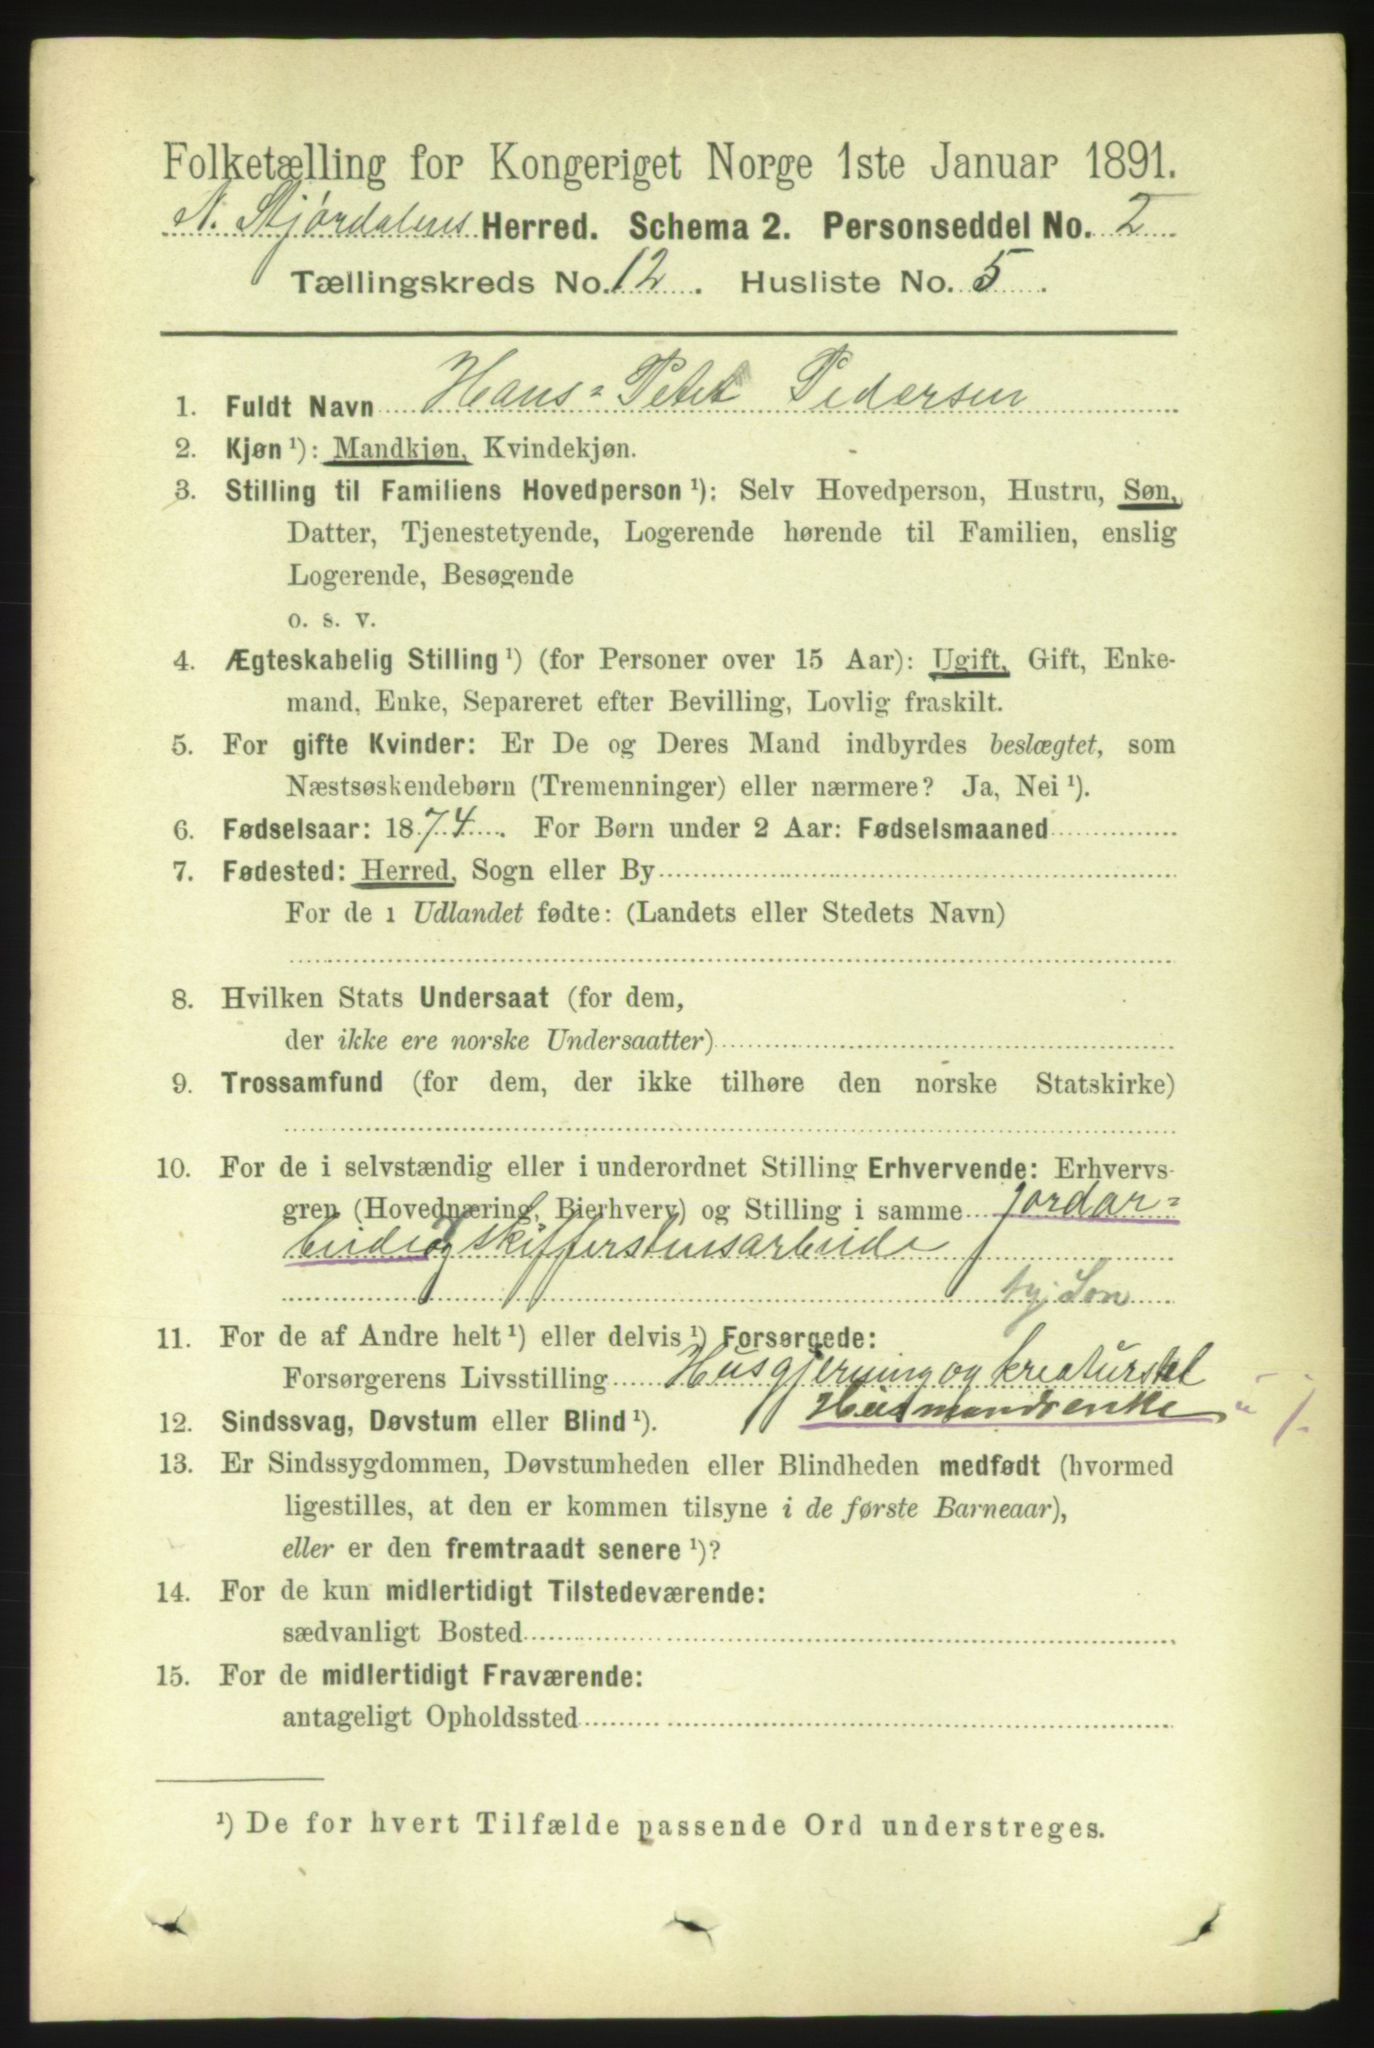 Folketælling for Kongeriget Norge 1ste Januar 1891.
N. Stjørdalens Herred. Schema 2. Personseddel No. 2
Tællingskreds No. 12. Husliste No. 5.
1. Fuldt Navn Hans = Peter Pedersen
2. Kjøn ¹): Mandkjøn, Kvindekjøn.
3. Stilling til Familiens Hovedperson ¹): Selv Hovedperson, Hustru, Søn,
Datter, Tjenestetyende, Logerende hørende til Familien, enslig
Logerende, Besøgende
o. s. v.
4. Ægteskabelig Stilling ¹) (for Personer over 15 Aar): Ugift, Gift, Enke-
mand, Enke, Separeret efter Bevilling, Lovlig fraskilt.
5. For gifte Kvinder: Er De og Deres Mand indbyrdes beslægtet, som
Næstsøskendebørn (Tremenninger) eller nærmere? Ja, Nei ¹).
6. Fødselsaar: 1874. For Børn under 2 Aar: Fødselsmaaned
7. Fødested: Herred, Sogn eller By
For de i Udlandet fødte: (Landets eller Stedets Navn)
8. Hvilken Stats Undersaat (for dem,
der ikke ere norske Undersaatter)
9. Trossamfund (for dem, der ikke tilhøre den norske Statskirke)
10. For de i selvstændig eller i underordnet Stilling Erhvervende: Erhvervs-
gren (Hovednæring, Bierhverv) og Stilling i samme Jordar=
beide og skifferstensarbeide
tyj. Søn
11. For de af Andre helt ¹) eller delvis ¹) Forsørgede:
Forsørgerens Livsstilling Husgjerning og kreaturstel
Husmandsenke
12. Sindssvag, Døvstum eller Blind ¹).
13. Er Sindssygdommen, Døvstumheden eller Blindheden medfødt (hvormed
ligestilles, at den er kommen tilsyne i de første Barneaar),
eller er den fremtraadt senere ¹)?
14. For de kun midlertidigt Tilstedeværende:
sædvanligt Bosted
15. For de midlertidigt Fraværende:
antageligt Opholdssted
¹) De for hvert Tilfælde passende Ord understreges.